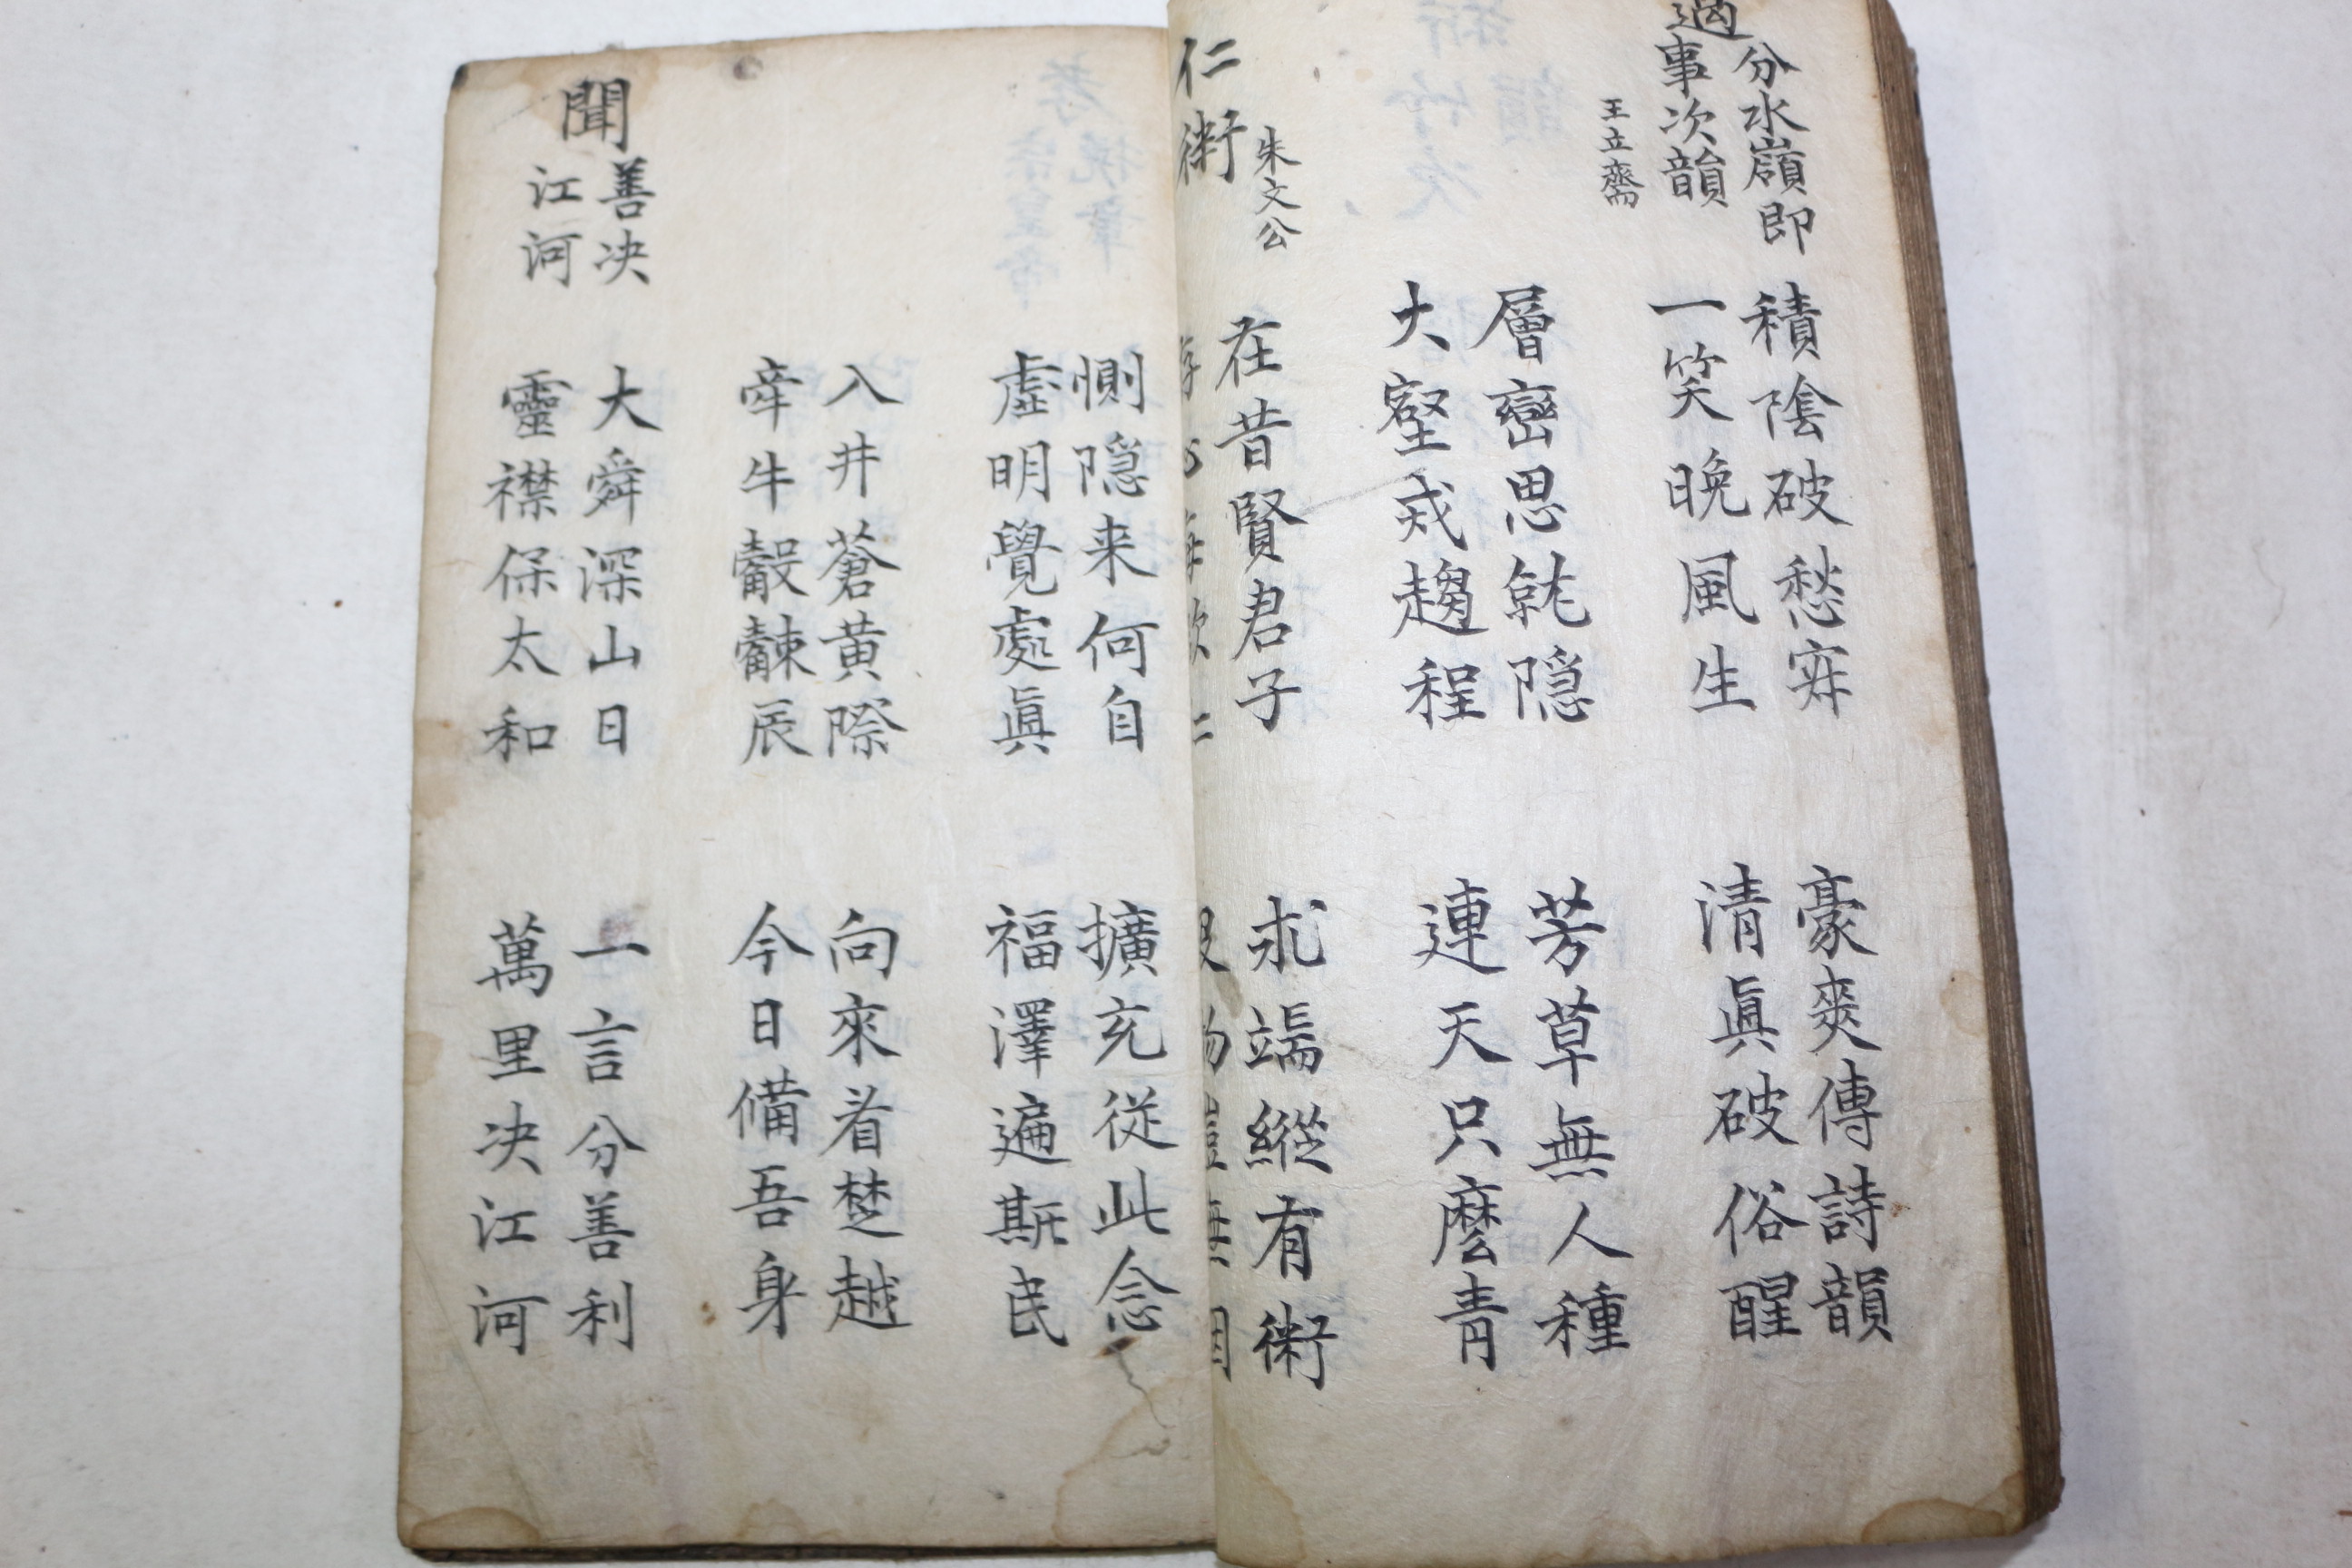 過
分水嶺即
事次韻
王立齋
積陰破愁 豪爽傳詩韻
一笑晚風生 清眞破俗醒
層巒思就隱 芳草無人種
大壑戒趨程 連天只麽青
仁術
朱文公
在昔賢君子 求端縱有術
惻隠来何自 擴充從此念
虛明覺處眞 福澤遍斯民
入井蒼黄際 向來看楚越
牽牛觳觫辰 今日備吾身
聞
善决
江河
大舜深山日 一言分善利
靈襟保太和 萬里决江河